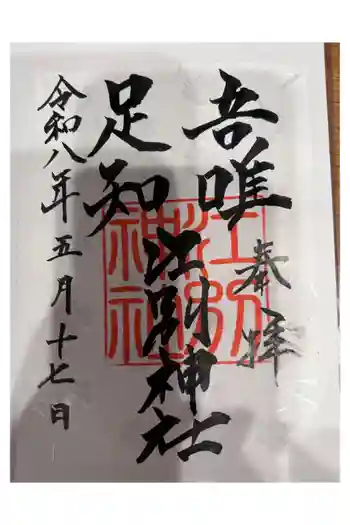 奉拝
吾唯
足知
江別神社
令和八年五月十七日
江別
神社